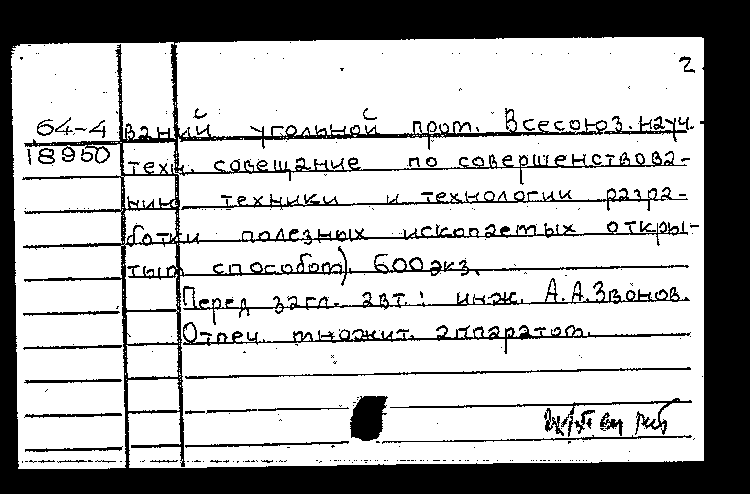 2.
64-4 ваний угольной пром. Всесоюз. науч.-
18950 техн. совещание по совершенствова-
нию техники и технологии разра-
ботки полезных ископаемых откры-
тым способом). 600 экз.
Перед загл. авт.: инж. А.А.Звонов.
Отпеч. множит. аппаратом.